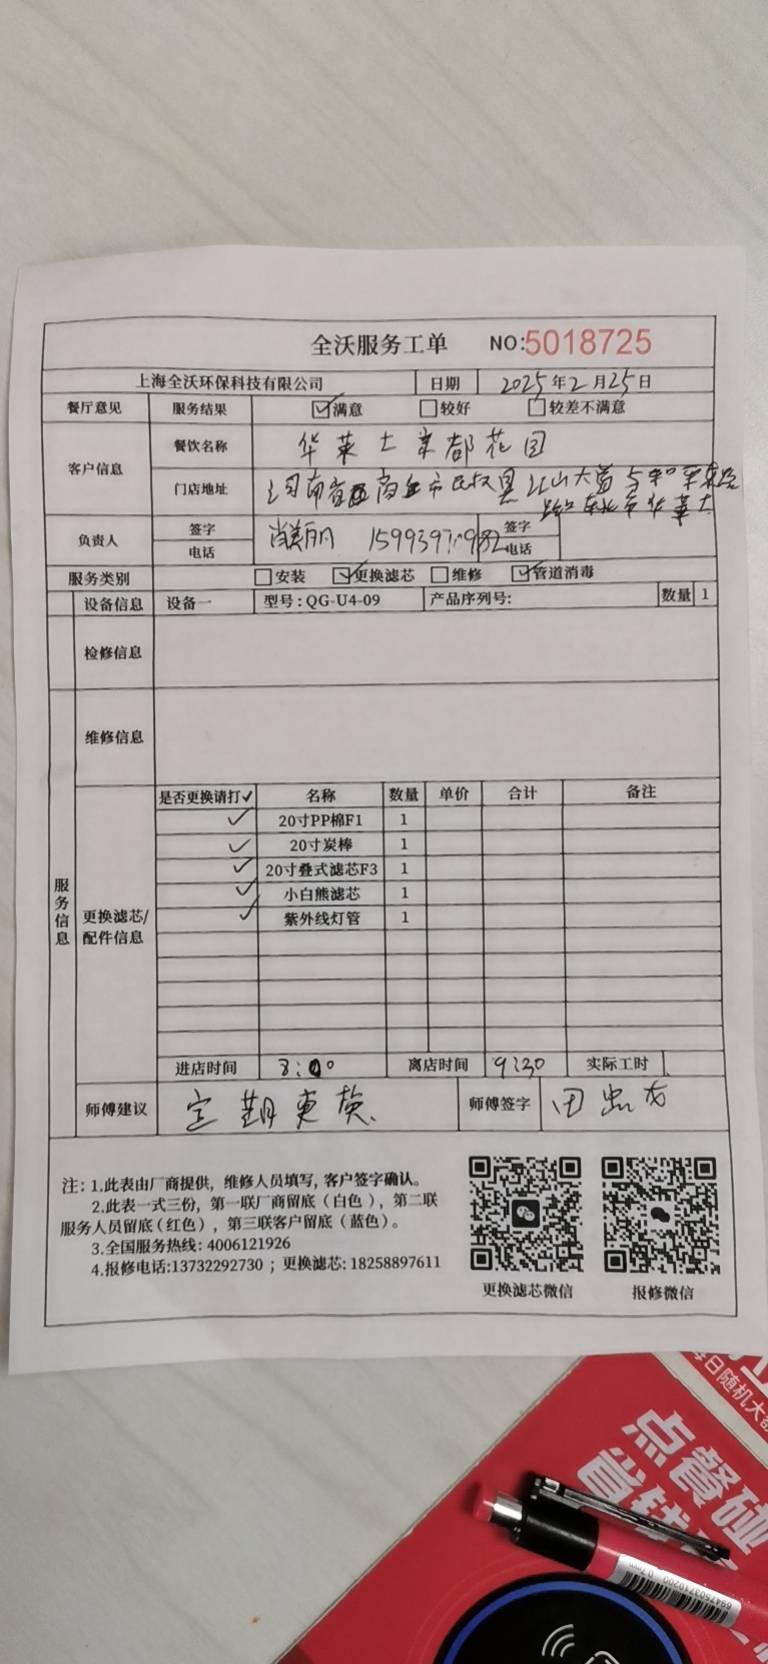 全沃服务工单 NO:5018725
上海全沃环保科技有限公司 日期 2025年2月25日
餐厅意见 服务结果 ☑满意 □较好 □较差不满意
客户信息 餐饮名称 华莱士京都花园
门店地址 河南省商丘市民权县江山大道与和平东路
路口东北
负责人 签字 肖美丽 签字
电话 电话
服务类别 □安装 ☑更换滤芯 □维修 ☑管道消毒
设备信息 设备一 型号:QG-U4-09 产品序列号: 数量 1
检修信息
维修信息
服务信息
更换滤芯/
配件信息
是否更换请打✓ 名称 数量 单价 合计 备注
✓ 20寸PP棉F1 1
✓ 20寸炭棒 1
✓ 20寸叠式滤芯F3 1
✓ 小白熊滤芯 1
✓ 紫外线灯管 1
进店时间 8:00 离店时间 9:30 实际工时
师傅建议 定期更换 师傅签字 田
注: 1.此表由厂商提供, 维修人员填写, 客户签字确认。
2.此表一式三份, 第一联厂商留底(白色), 第二联
服务人员留底(红色), 第三联客户留底(蓝色)。
3.全国服务热线: 4006121926
4.报修电话:13732292730 ; 更换滤芯: 18258897611
更换滤芯微信 报修微信
每日随机大
点餐碰
省钱
6947503710200 0.7mm